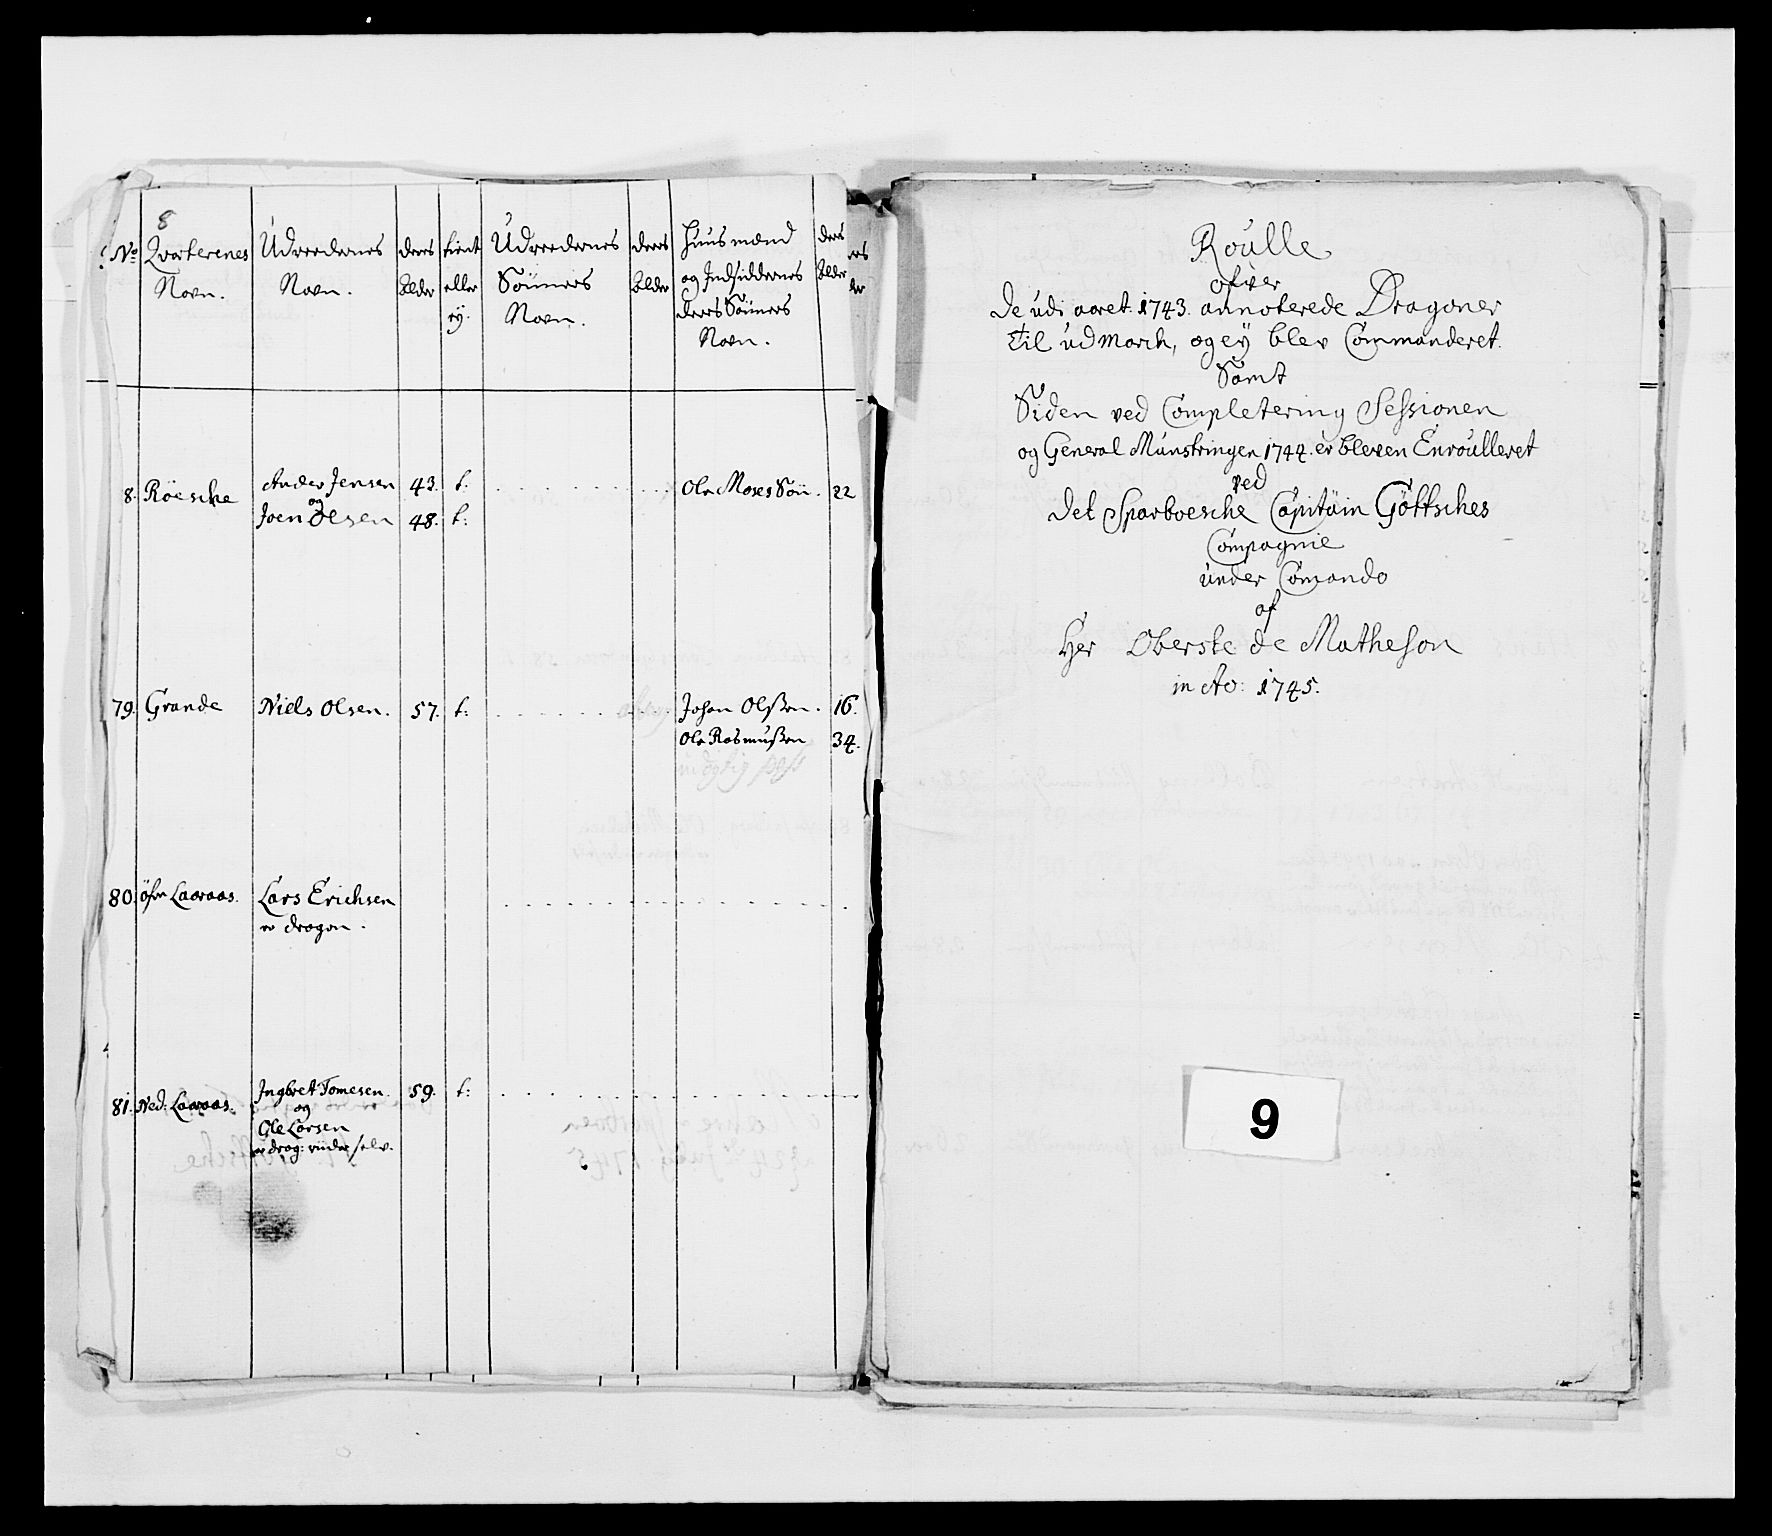 8
No Qvarterenes Navn. Udreedernes Navn. deres Alder tient eller ey. Udreedernes Sönners Navn. deres Alder Huusmænd og Indsiddernes deres Sönners Navn. deres Alder
8. Röesche Ander Jensen 43. t: Ole Moses Sön. 22
og
Joen Olsen 48. t:
79. Grande Niels Olsen. 57. t: Johan Olssen. 16.
Ole Rasmussen 34.
80. öfre Laaraas. Lars Erichsen
er dragon.
81. Ned: Laaraas. Ingbret Tomesen 59. t:
og
Ole Larsen
er drag: under selv.
Roulle
ofver
de udi aaret 1743. annoterede Dragoner
til udmarch, og ey blev Commanderet.
Samt
Siden ved Completering Sessionen
og General Munstringen 1744. er bleven Enroulleret
ved
det Sparboesche Capitain Göttsches
Compagnie
under Comando
af
Her Oberste de Matheson
in Ao: 1745.
9